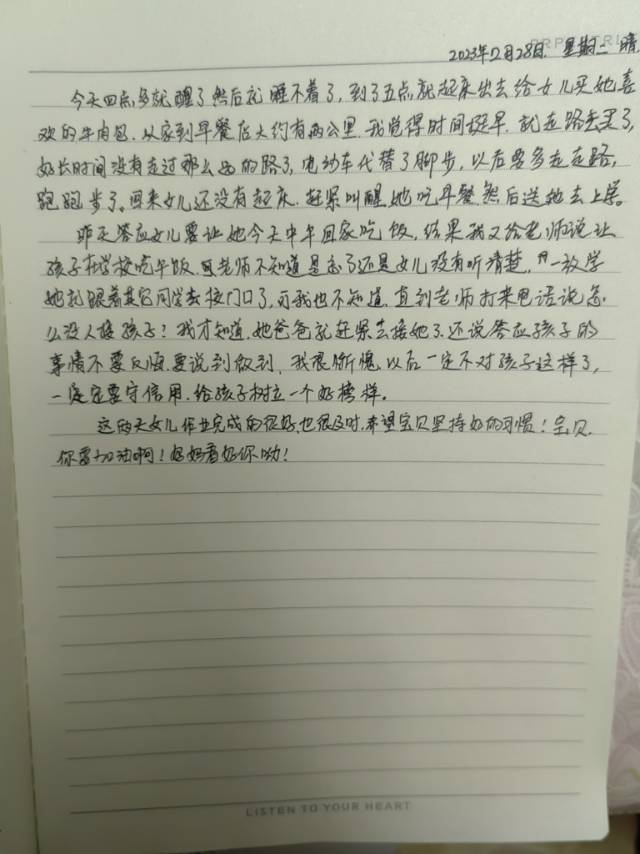 2023年2月28日. 星期二 晴
今天四点多就醒了然后就睡不着了,到了五点就起床出去给女儿买她喜
欢的牛肉包.从家到早餐店大约有两公里.我觉得时间挺早.就走路去买了,
好长时间没有走过那么远的路了,电动车代替了脚步,以后要多走走路,
跑跑步了。回来女儿还没有起床.赶紧叫醒她吃早餐然后送她去上学。
昨天答应女儿要让她今天中午回家吃饭,结果我又给老师说让
孩子在学校吃午饭.老师不知道是忘了还是女儿没有听清楚,一放学
她就跟着其它同学去校门口了,可我也不知道.直到老师打来电话说怎
么没人接孩子?我才知道.她爸爸就赶紧去接她了.还说答应孩子的
事情不要反悔.要说到做到.我很惭愧.以后一定不对孩子这样了,
一定要守信用.给孩子树立一个好榜样。
这两天女儿作业完成的很好.也很及时.希望宝贝坚持好的习惯!宝贝.
你要加油啊!妈妈看好你呦!
LISTEN TO YOUR HEART